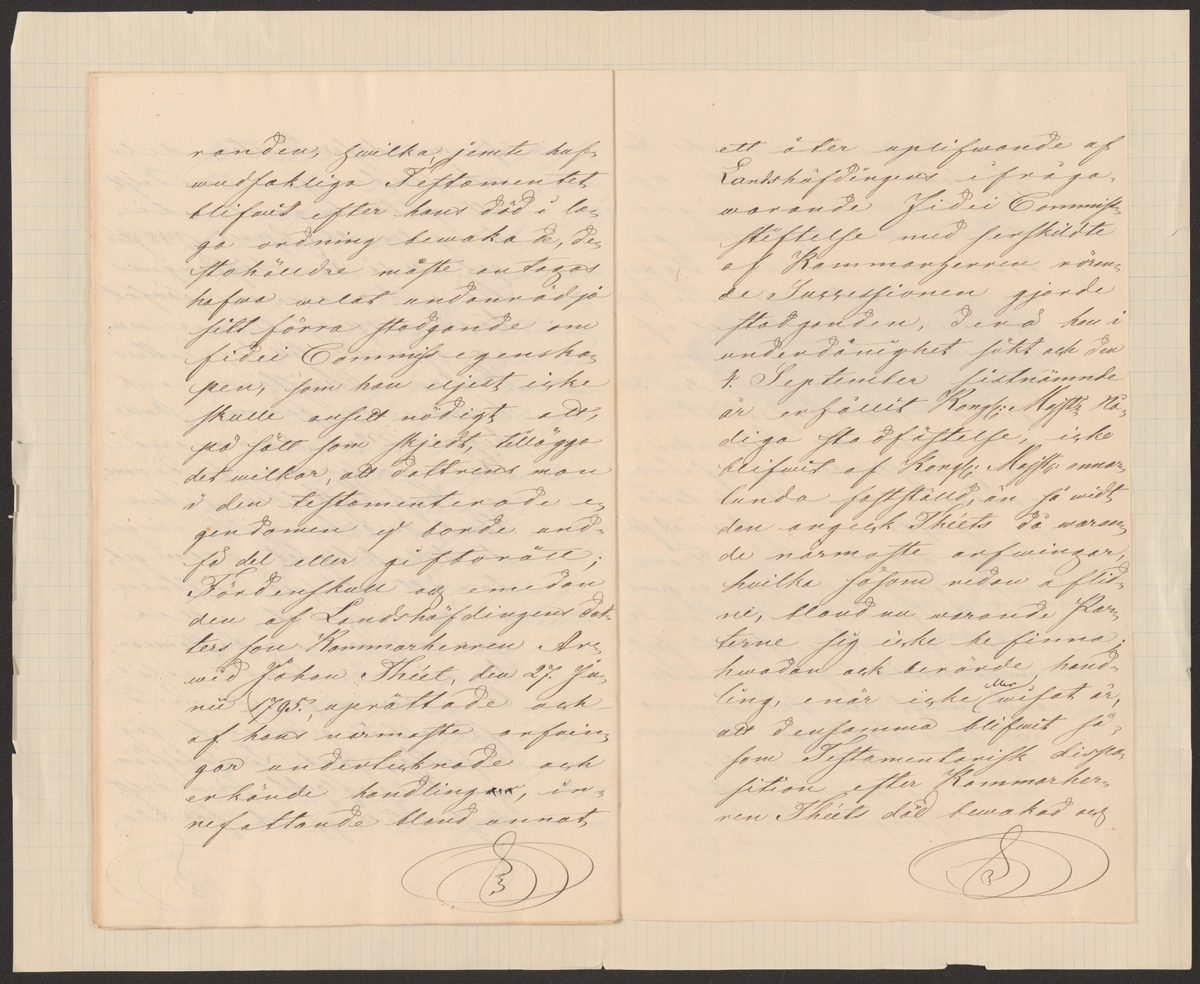 randen, hwilka, jemte huf-
wudsakliga Testamentet
blifwit efter hans död i la-
ga ordning bewakade, de-
stohälldre måste antagas
hafwa welat undanrödja
sitt förra stadgande om
fidei Commiss egenska-
pen, som han eljest icke
skulle ansett nödigt att,
på sätt som skjedt, tillägga
det wilkor, att dottrens man
i den testamenterade e-
gendomen ej borde und-
få del eller giftorätt;
Fördenskull och emedan
den af Landshöfdingens dot-
terson Kammarherren Ar-
wid Johan Théet, den 27. Ju-
nii 1795, uprättade och
af hans närmaste arfwin-
gar undertecknade och
erkände handling, in-
nefattande bland annat
ett åter uplifwande af
Landshöfdingens ifråga-
warande Fidei Commiss-
stiftelse med serskildte
af Kammarherren röran-
de Successionen gjorde
stadganden, derå han i
underdånighet sökt och den
4. September sistnämnde
år erhållit Kongl: Majtz Nå-
diga stadfästelse, icke
blifwit af Kongl: Majt: annor-
lunda fastställd, än så widt
den angick Théets då waran-
de närmaste arfwingar,
hvilka såsom redan aflid-
ne, bland nu warande Par-
terne sig icke befinna;
hwadan och berörde hand-
ling, enär icke wisat är,
att densamma blifwit så-
som Testamentarisk dispo-
sition efter Kammarher-
ren Théets död bewakad och